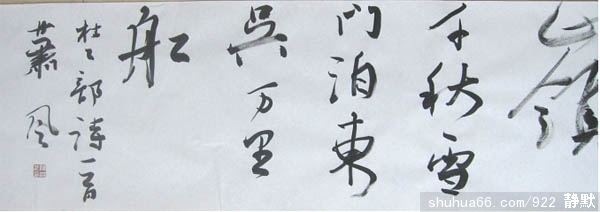 嶺
千秋雪
門泊東
吳万里
船
杜工部詩一首
蕭风
shuhua66.com/922 静默